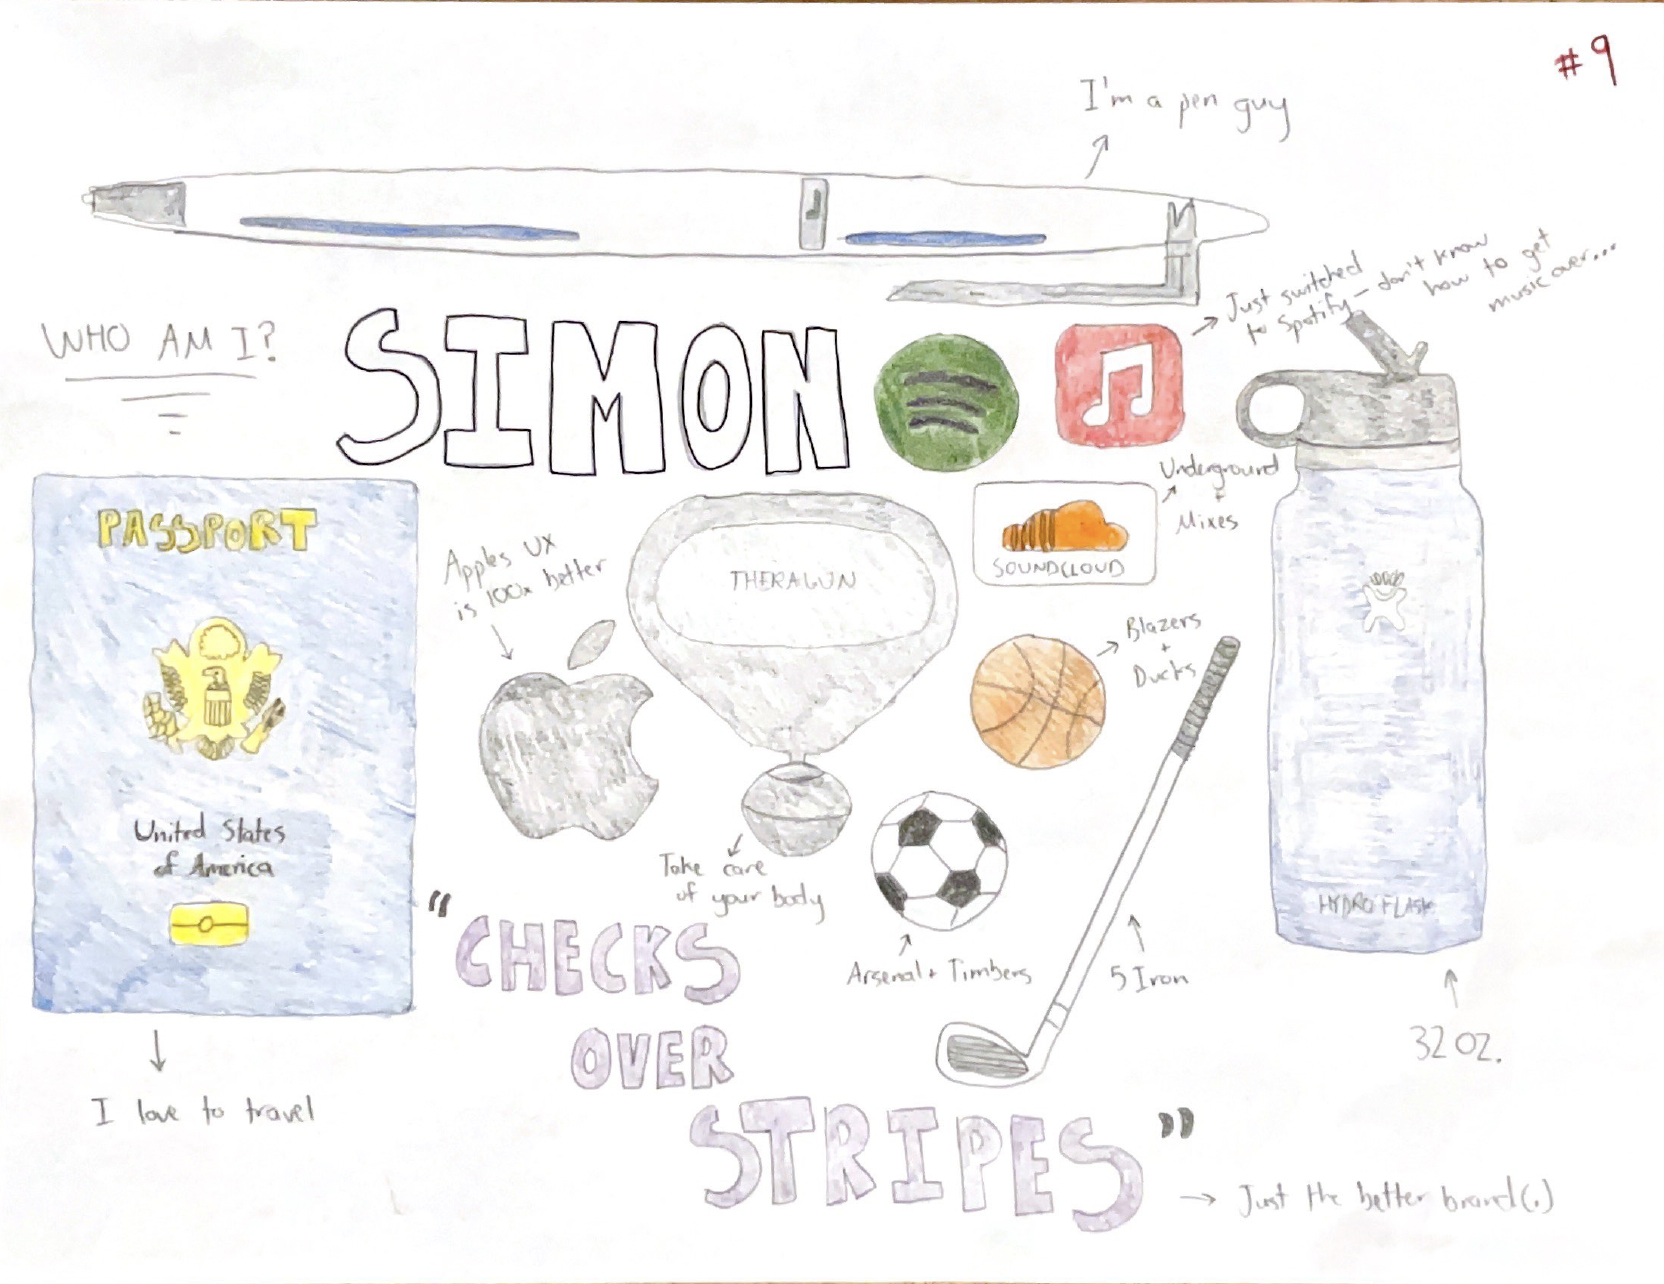 #9
I'm a pen guy
Just switched
to Spotify – don't know
how to get
music over...
WHO AM I?
SIMON
Underground
+
Mixes
SOUNDCLOUD
PASSPORT
United States
of America
I love to travel
Apples UX
is 100x better
THERAGUN
Take care
of your body
Blazers
+
Ducks
Arsenal + Timbers
5 Iron
HYDRO FLASK
32 OZ.
"CHECKS
OVER
STRIPES"
Just the better brand(.)